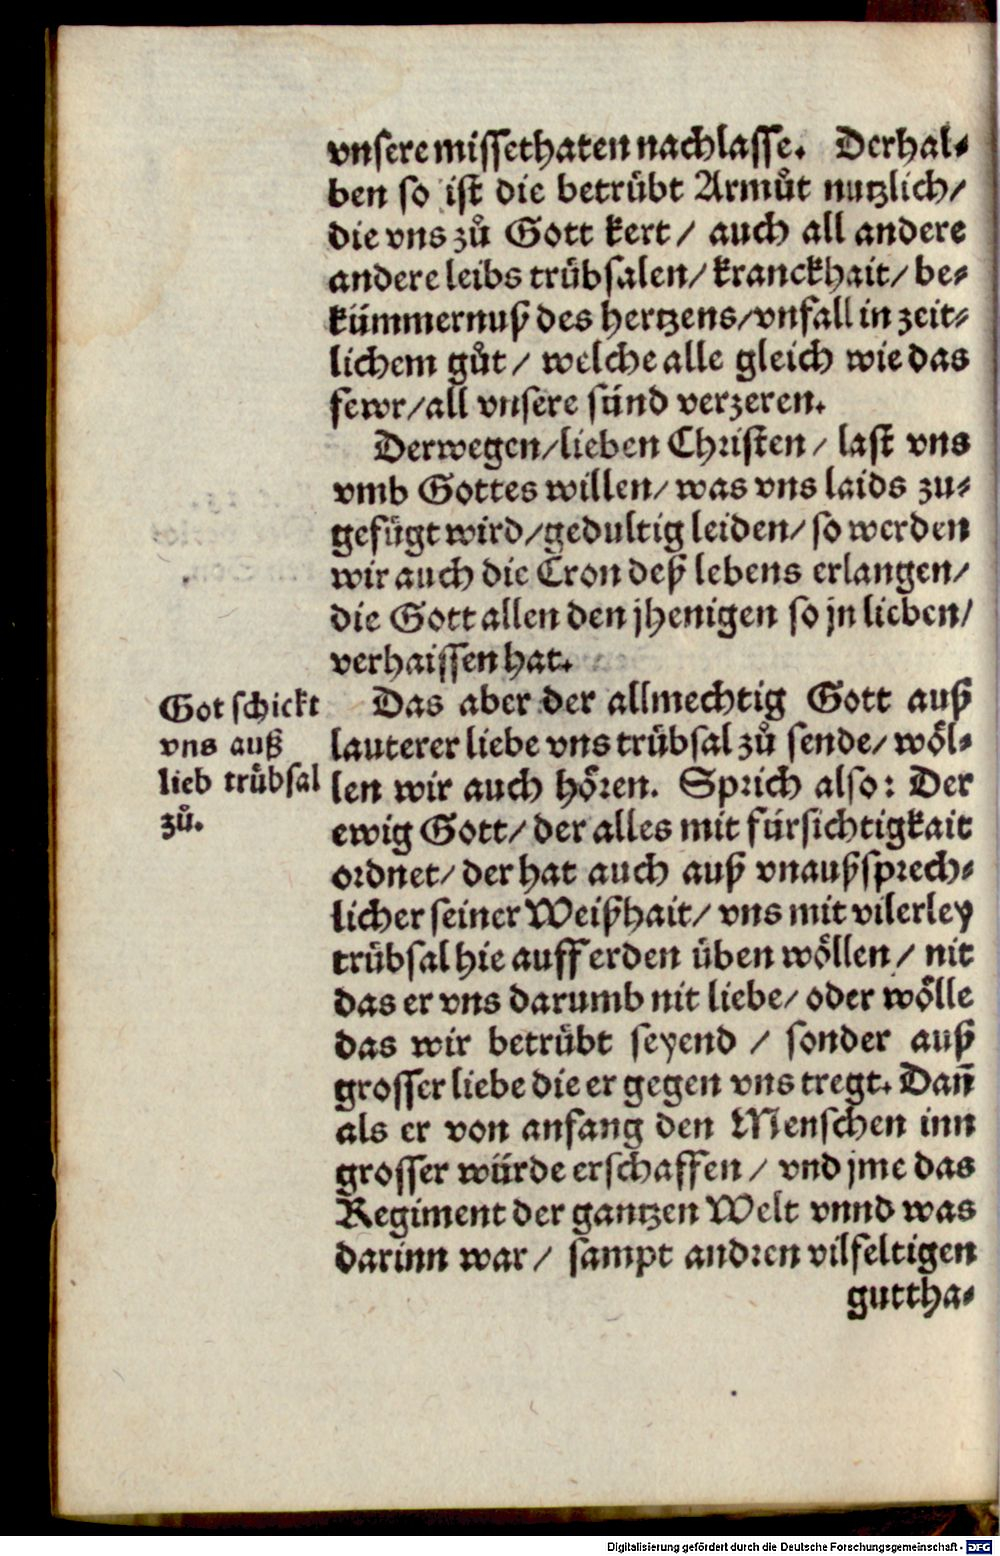 vnsere missethaten nachlasse. Derhal⸗
ben so ist die betruͤbt Armuͦt nutzlich/
die vns zuͦ Gott kert/ auch all andere
andere leibs truͤbsalen/ kranckhait/ be⸗
kümmernuß des hertzens/ vnfall in zeit⸗
lichem guͦt/ welche alle gleich wie das
fewr/ all vnsere sünd verzeren.
Derwegen/ lieben Christen/ last vns
vmb Gottes willen/ was vns laids zu⸗
gefuͤgt wird/ gedultig leiden/ so werden
wir auch die Cron deß lebens erlangen/
die Gott allen den jhenigen so jn lieben/
verhaissen hat.
Das aber der allmechtig Gott auß
lauterer liebe vns truͤbsal zuͦ sende/ woͤl⸗
len wir auch hoͤren. Sprich also: Der
ewig Gott/ der alles mit fürsichtigkait
ordnet/ der hat auch auß vnaußsprech⸗
licher seiner Weißhait/ vns mit vilerley
truͤbsal hie auff erden üben woͤllen/ nit
das er vns darumb nit liebe/ oder woͤlle
das wir betruͤbt seyend / sonder auß
grosser liebe die er gegen vns tregt. Dañ
als er von anfang den Menschen inn
grosser würde erschaffen/ vnd jme das
Regiment der gantzen Welt vnnd was
darinn war/ sampt andren vilfeltigen
guttha⸗
Got schickt
vns auß
lieb truͤbsal
zuͦ.
Digitalisierung gefördert durch die Deutsche Forschungsgemeinschaft - DFG